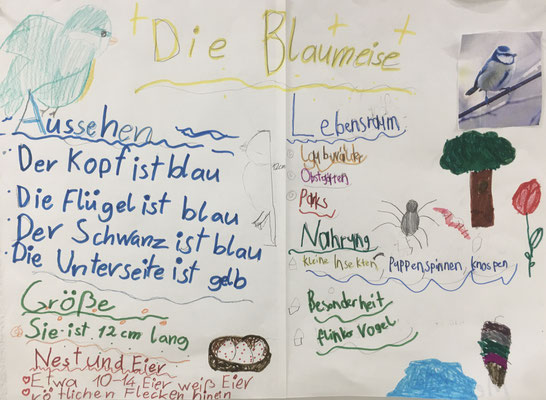 Die Blaumeise
Aussehen
Der Kopf ist blau
Die Flügel ist blau
Der Schwanz ist blau
Die Unterseite ist gelb
Größe
Sie ist 12 cm lang
Nest und Eier
Etwa 10-14 Eier weiß Eier
rötlichen Flecken
12cm
Lebensraum
Laubwälder
Obstgärten
Parks
Nahrung
kleine Insekten, Puppen, spinnen, knospen
Besonderheit
flinker Vogel